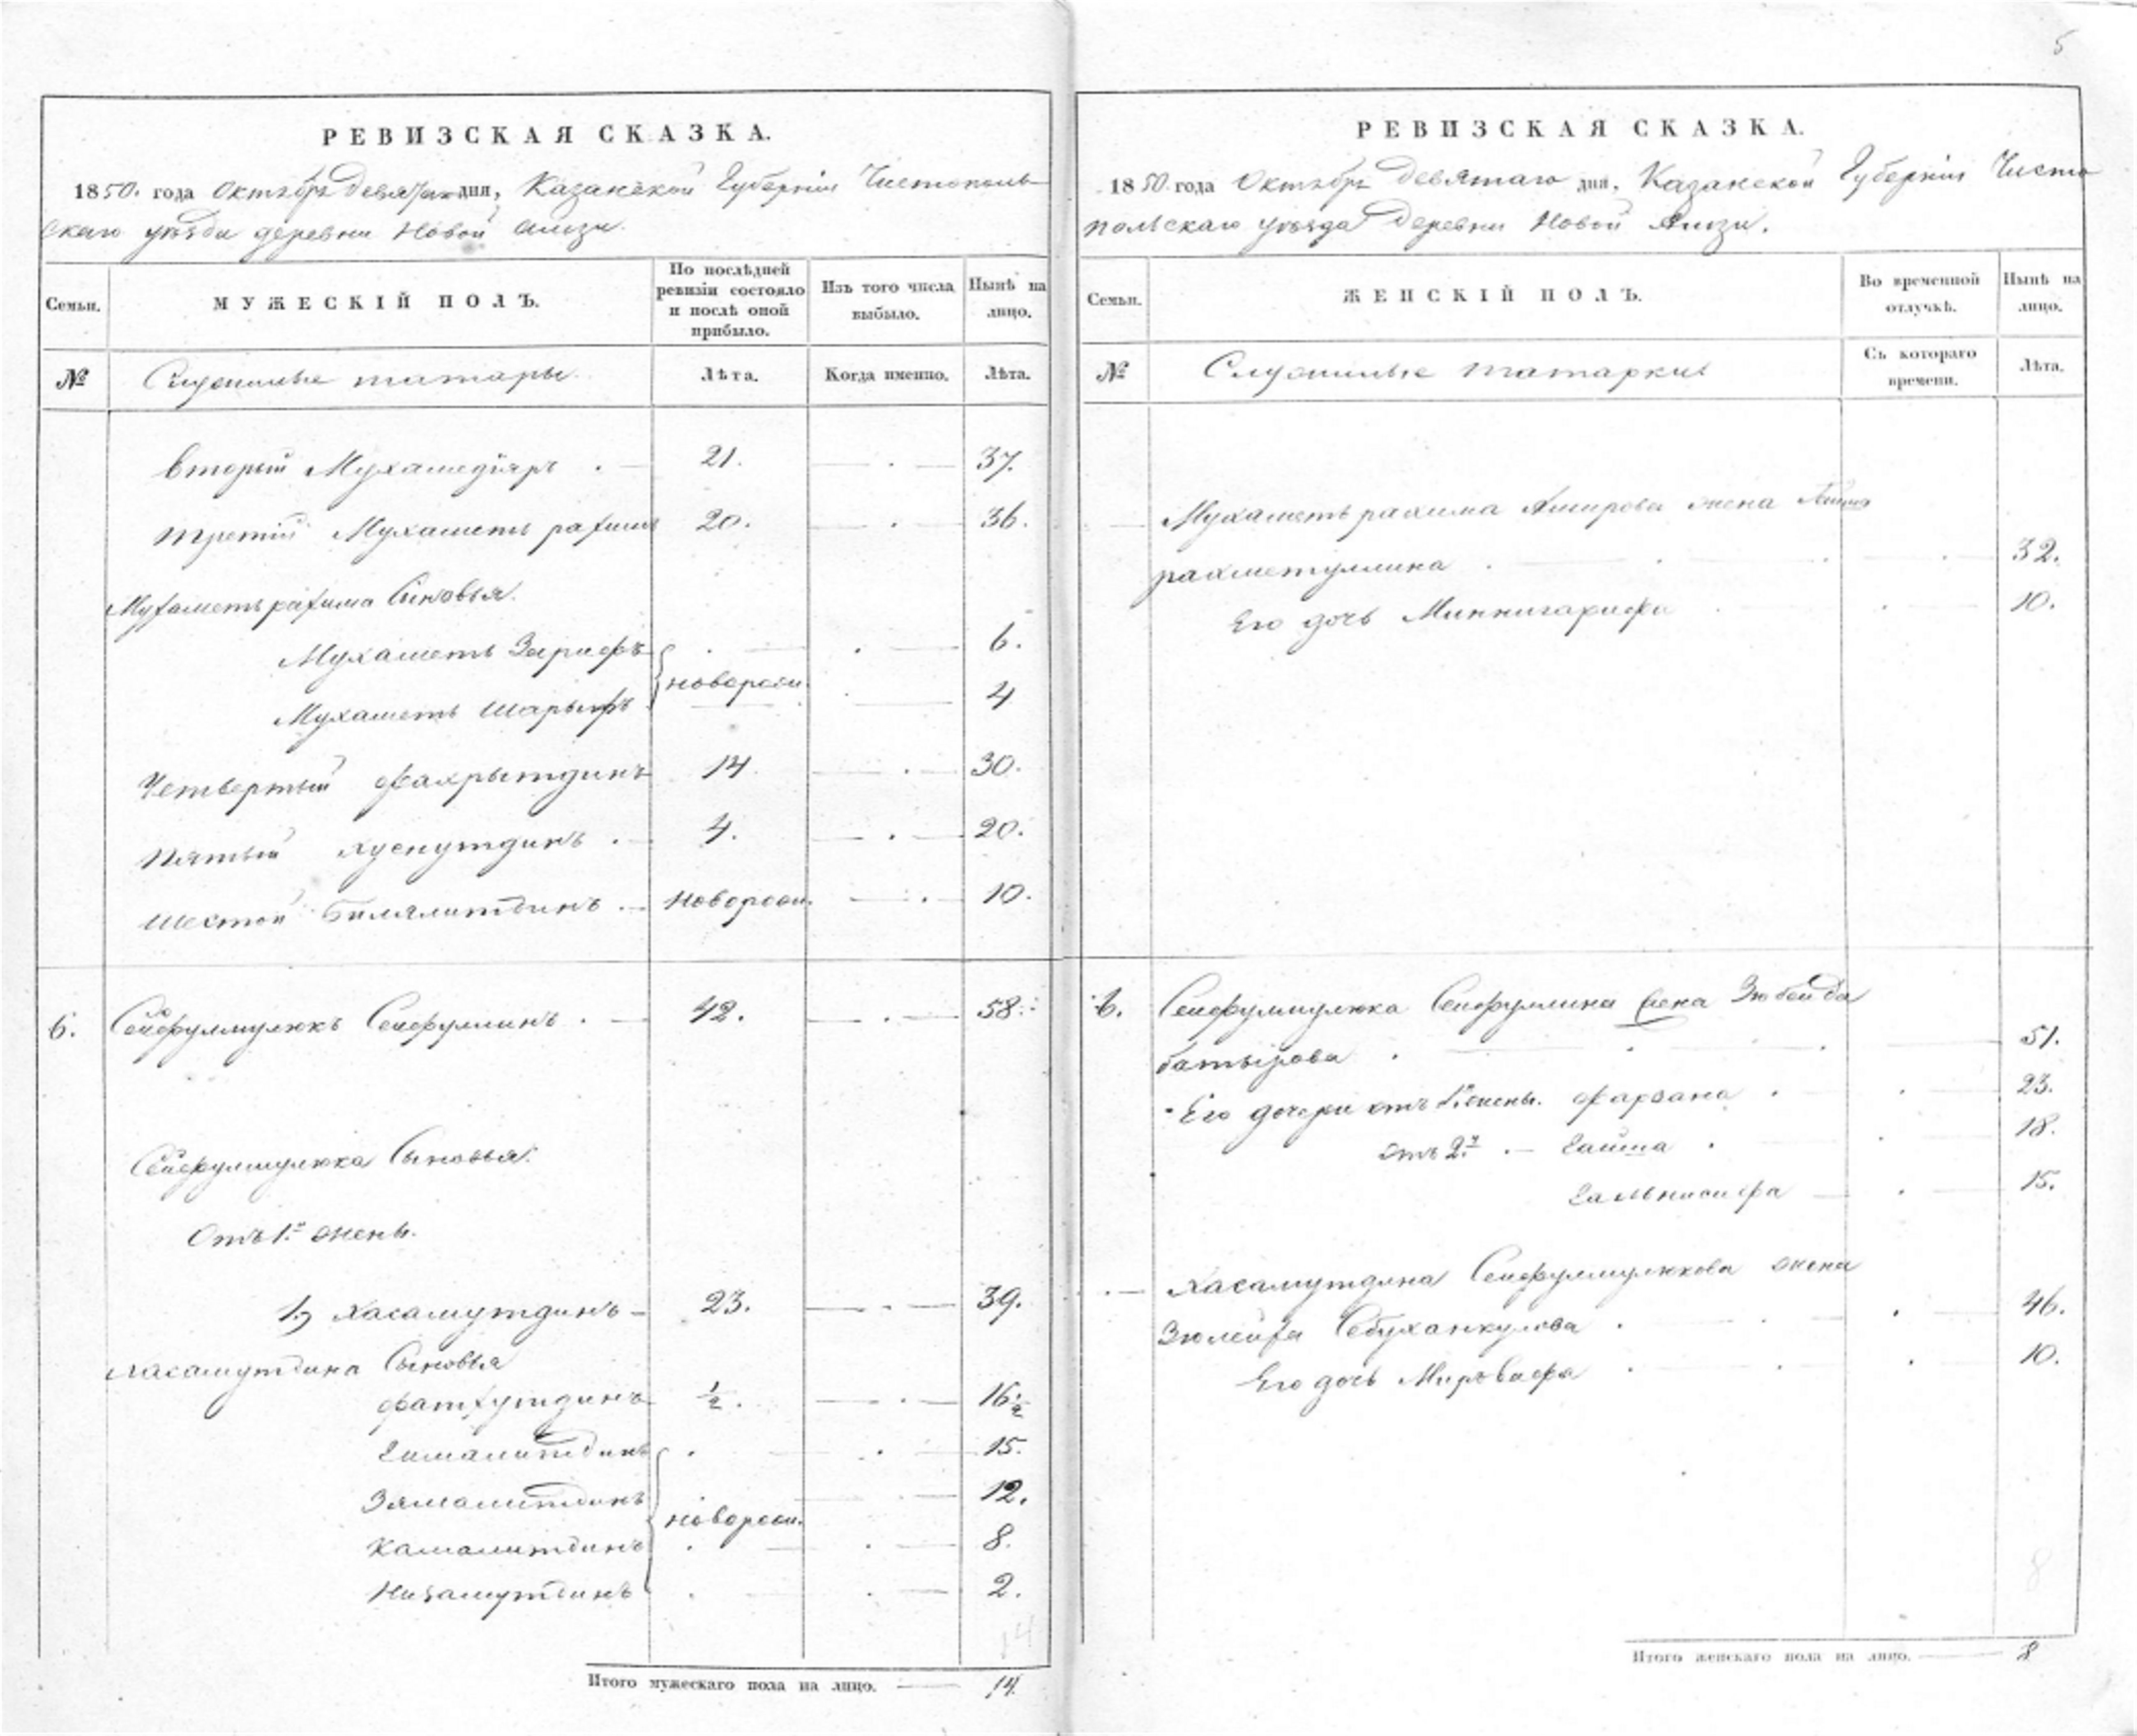 5
РЕВИЗСКАЯ СКАЗКА.
1850. года Октября девятаго дня, Казанской Губернiи Чистополь
скаго уѣзда деревни Новой Амзи.
Семьи.
МУЖЕСКIЙ ПОЛЪ.
По послѣдней ревизiи состояло и послѣ оной прибыло.
Изъ того числа выбыло.
Нынѣ на лицо.
№
Служилые татары.
Лѣта.
Когда именно.
Лѣта.
второй Мухамедiяръ . 21. 37.
третiй Мухаметь рахимъ 20. 36.
Мухаметь рахима Сыновья.
Мухаметь Зарифъ 6.
новорож.
Мухаметь Шарыфъ 4
Четвертый Фахрытдинъ 14 30.
Пятый Хуснутдинъ . 4. 20.
Шестой Билялитдинъ . новорож. 10.
6. Сейфулмулюкъ Сейфуллинъ . 42. 58.
Сейфулмулюка Сыновья:
Отъ 1й жены.
1) Хасамутдинъ 23. 39.
Хасамутдина Сыновья
Фатхутдинъ ½. 16½
Гималитдинъ 15.
Зямалитдинъ 12.
новорож.
Камалитдинъ 8.
Низамутдинъ 2.
14
Итого мужескаго пола на лицо. 14.
РЕВИЗСКАЯ СКАЗКА.
1850 года Октября девятаго дня, Казанской Губернiи Чисто
польскаго уѣзда деревни Новой Амзи.
Семьи.
ЖЕНСКIЙ ПОЛЪ.
Во временной отлучкѣ.
Нынѣ на лицо.
№
Служилые татарки
Съ котораго времени.
Лѣта.
Мухаметь рахима Амирова жена
рахметуллина . 32.
Его дочь Миннигарифа 10.
6. Сейфулмулюка Сейфуллина жена Зюбейда
батырова . 51.
Его дочери отъ 1й жены. Фарзана . 23.
отъ 2й . Гайша . 18.
15.
Хасамутдина Сейфулмулюкова жена
Зюлейха . 46.
Его дочь 10.
8
Итого женскаго пола на лицо. 8